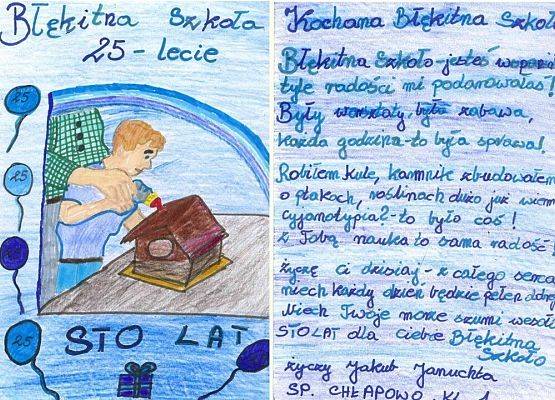 Błękitna Szkoła
25-lecie
25
25
25
25
STO LAT
Kochana Błękitna
Błękitna Szkoło-jesteś
tyle radości mi podarowałaś!
Były warsztaty, była zabawa,
każda godzina-to była sprawa!
Robiłem kule, karmnik zbudowałem
o ptakach, roślinach dużo już wiem
cyjanotypia?-to było coś!
z Tobą nauka to sama radość!
życzę ci dzisiaj-z całego serca
niech każdy dzień będzie pełen
Niech Twoje morze szumi
STO LAT dla ciebie Błękitna
Szkoło
życzy Jakub Januchta
SP. CHŁAPOWO, KL. 1